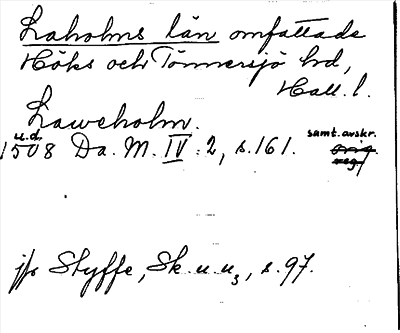 Laholms län omfattade
Höks och Tönnersjö hrd,
Hall. l.
Laweholm.
u.d.
1508 Da. M. IV:2, s.161. samt. avskr.
orig.
jfr Styffe, Sk. u. u3, s.97.